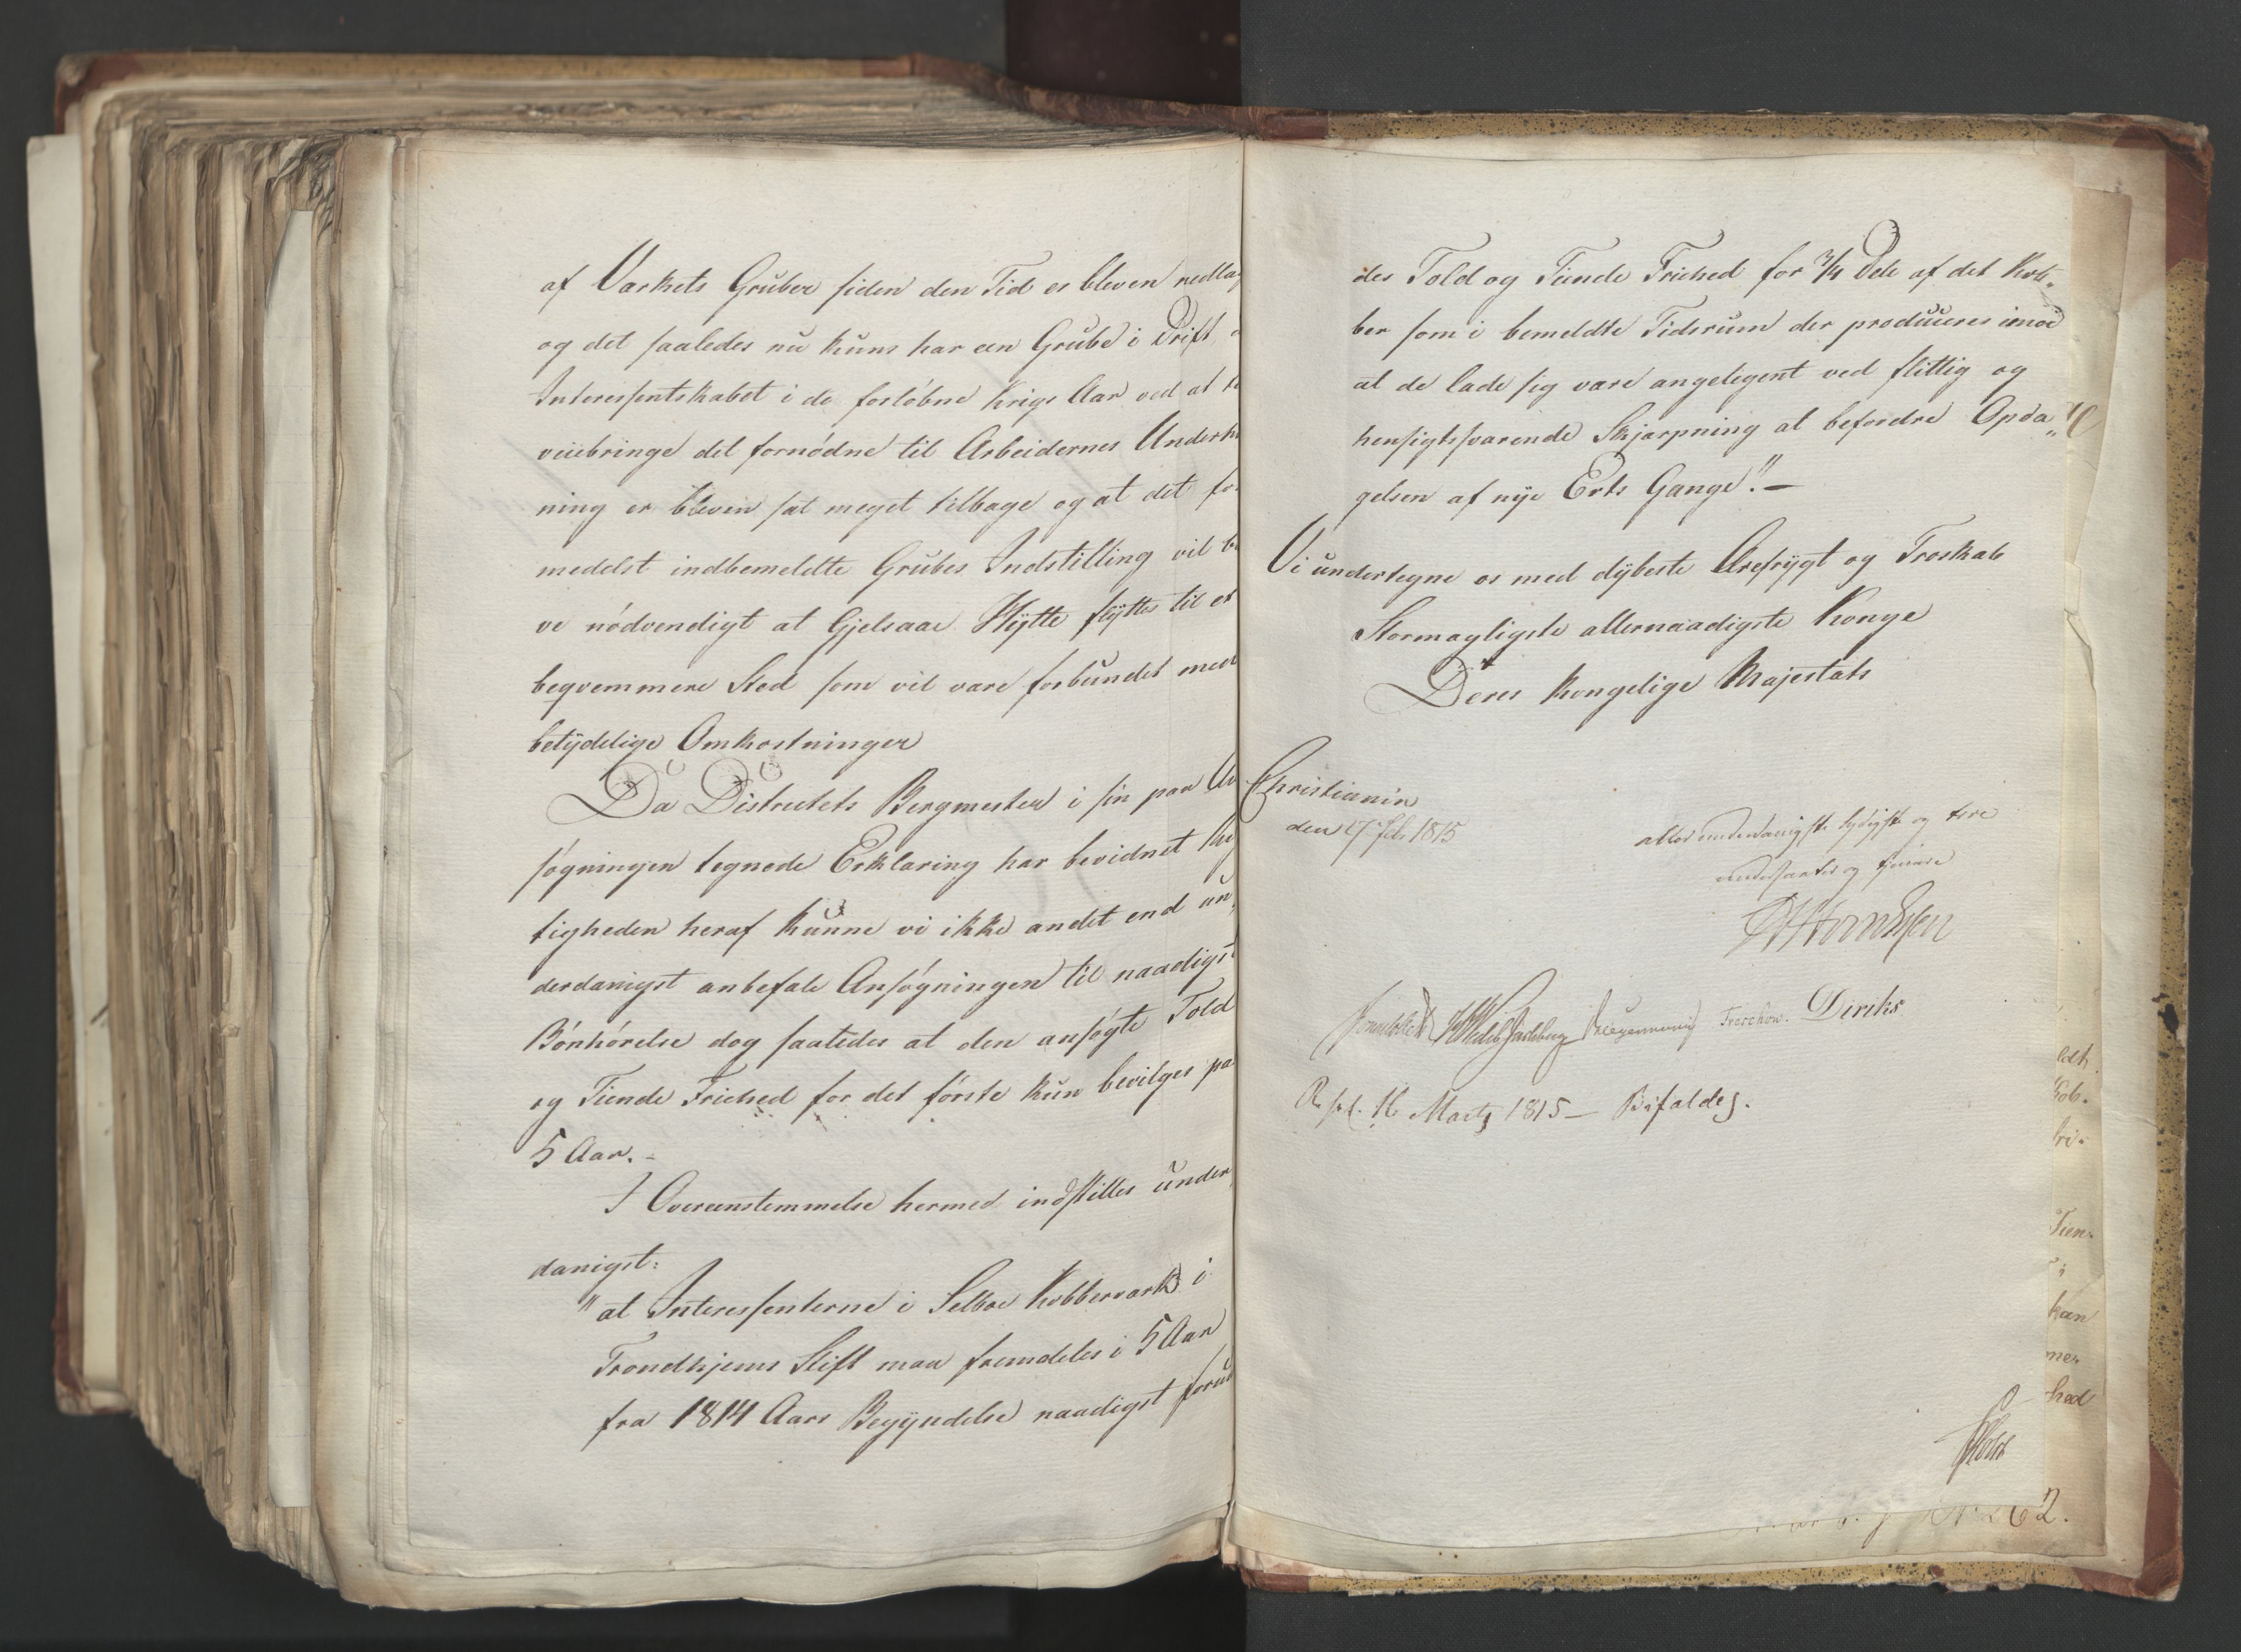 af Værkets Gruber siden den Tid er bleven nedla
og det saaledes nu kuns har een Grube i Drift
Interessentskabet i de forløbne Krigs Aar ved at
veiebringe det fornødne til Arbeidernes Underh
ning er bleven sat meget tilbage og at det for
medelst indbemeldte Grubes Indstilling vil b
ve nødvendigt at Gjelsaae Hytte flyttes til et
beqvemmere Sted som vil være forbundet med
betydelige Omkostninger
Da Districtets Bergmester i sin paa An
søgningen tegnede Erklæring har bevidnet Rig
tigheden heraf kunne vi ikke andet end un,
derdanigst anbefale Ansøgningen til naadigst
Bønhørelse dog saaledes at den ansøgte Told
og Tiende Friehed for det første kun bevilges paa
5 Aar.-
I Overeenstemmelse hermed indstilles under
danigst:
"at Interessenterne i Selboe Kobberværk i
Trondhjems Stift maa fremdeles i 5 Aar
fra 1814 Aars Begyndelse naadigst forun
des Told og Tiende Friehed for 3/4 Dele af det Kob„
ber som i bemeldte Tidsrum der produceres imod
at de lade sig være angelegent ved flittig og
hensigtssvarende Skjærpning at befordre Opda„
gelsen af nye Erts Gange".—
Vi undertegne os med dybeste Ærefrygt og Troskab
Stormægtigste allernaadigste Konge
Deres Kongelige Majestæts
Christiania
den 17 Feb. 1815
allerunderdanigste lydigste og troe
undersaatter og tjenere
Sommerhielm HWedel Jarlsberg Treschow. Diriks
Resol. 16 Marts 1815 — Bifaldes.
Holst
62.